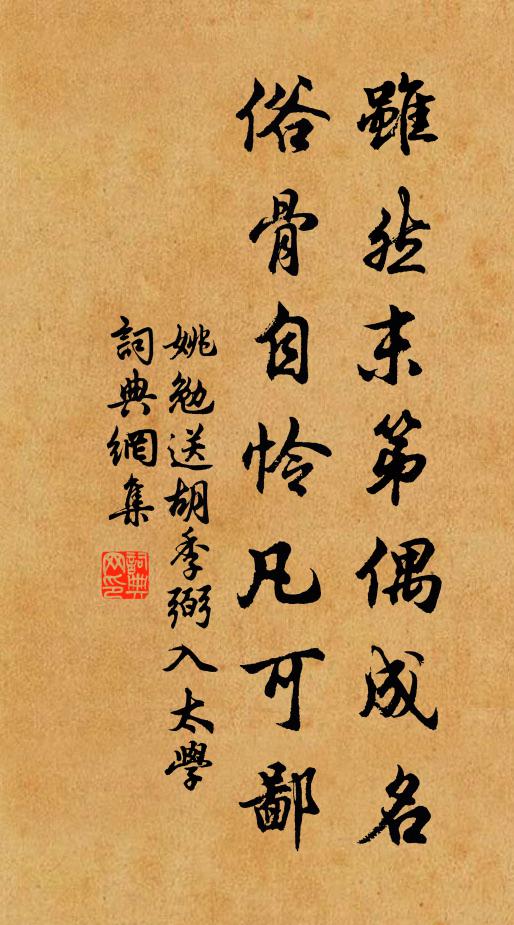 雖然末第偶成名
俗骨自怜凡可鄙
姚勉送胡季弼入太學
詞典網集
詞典網印